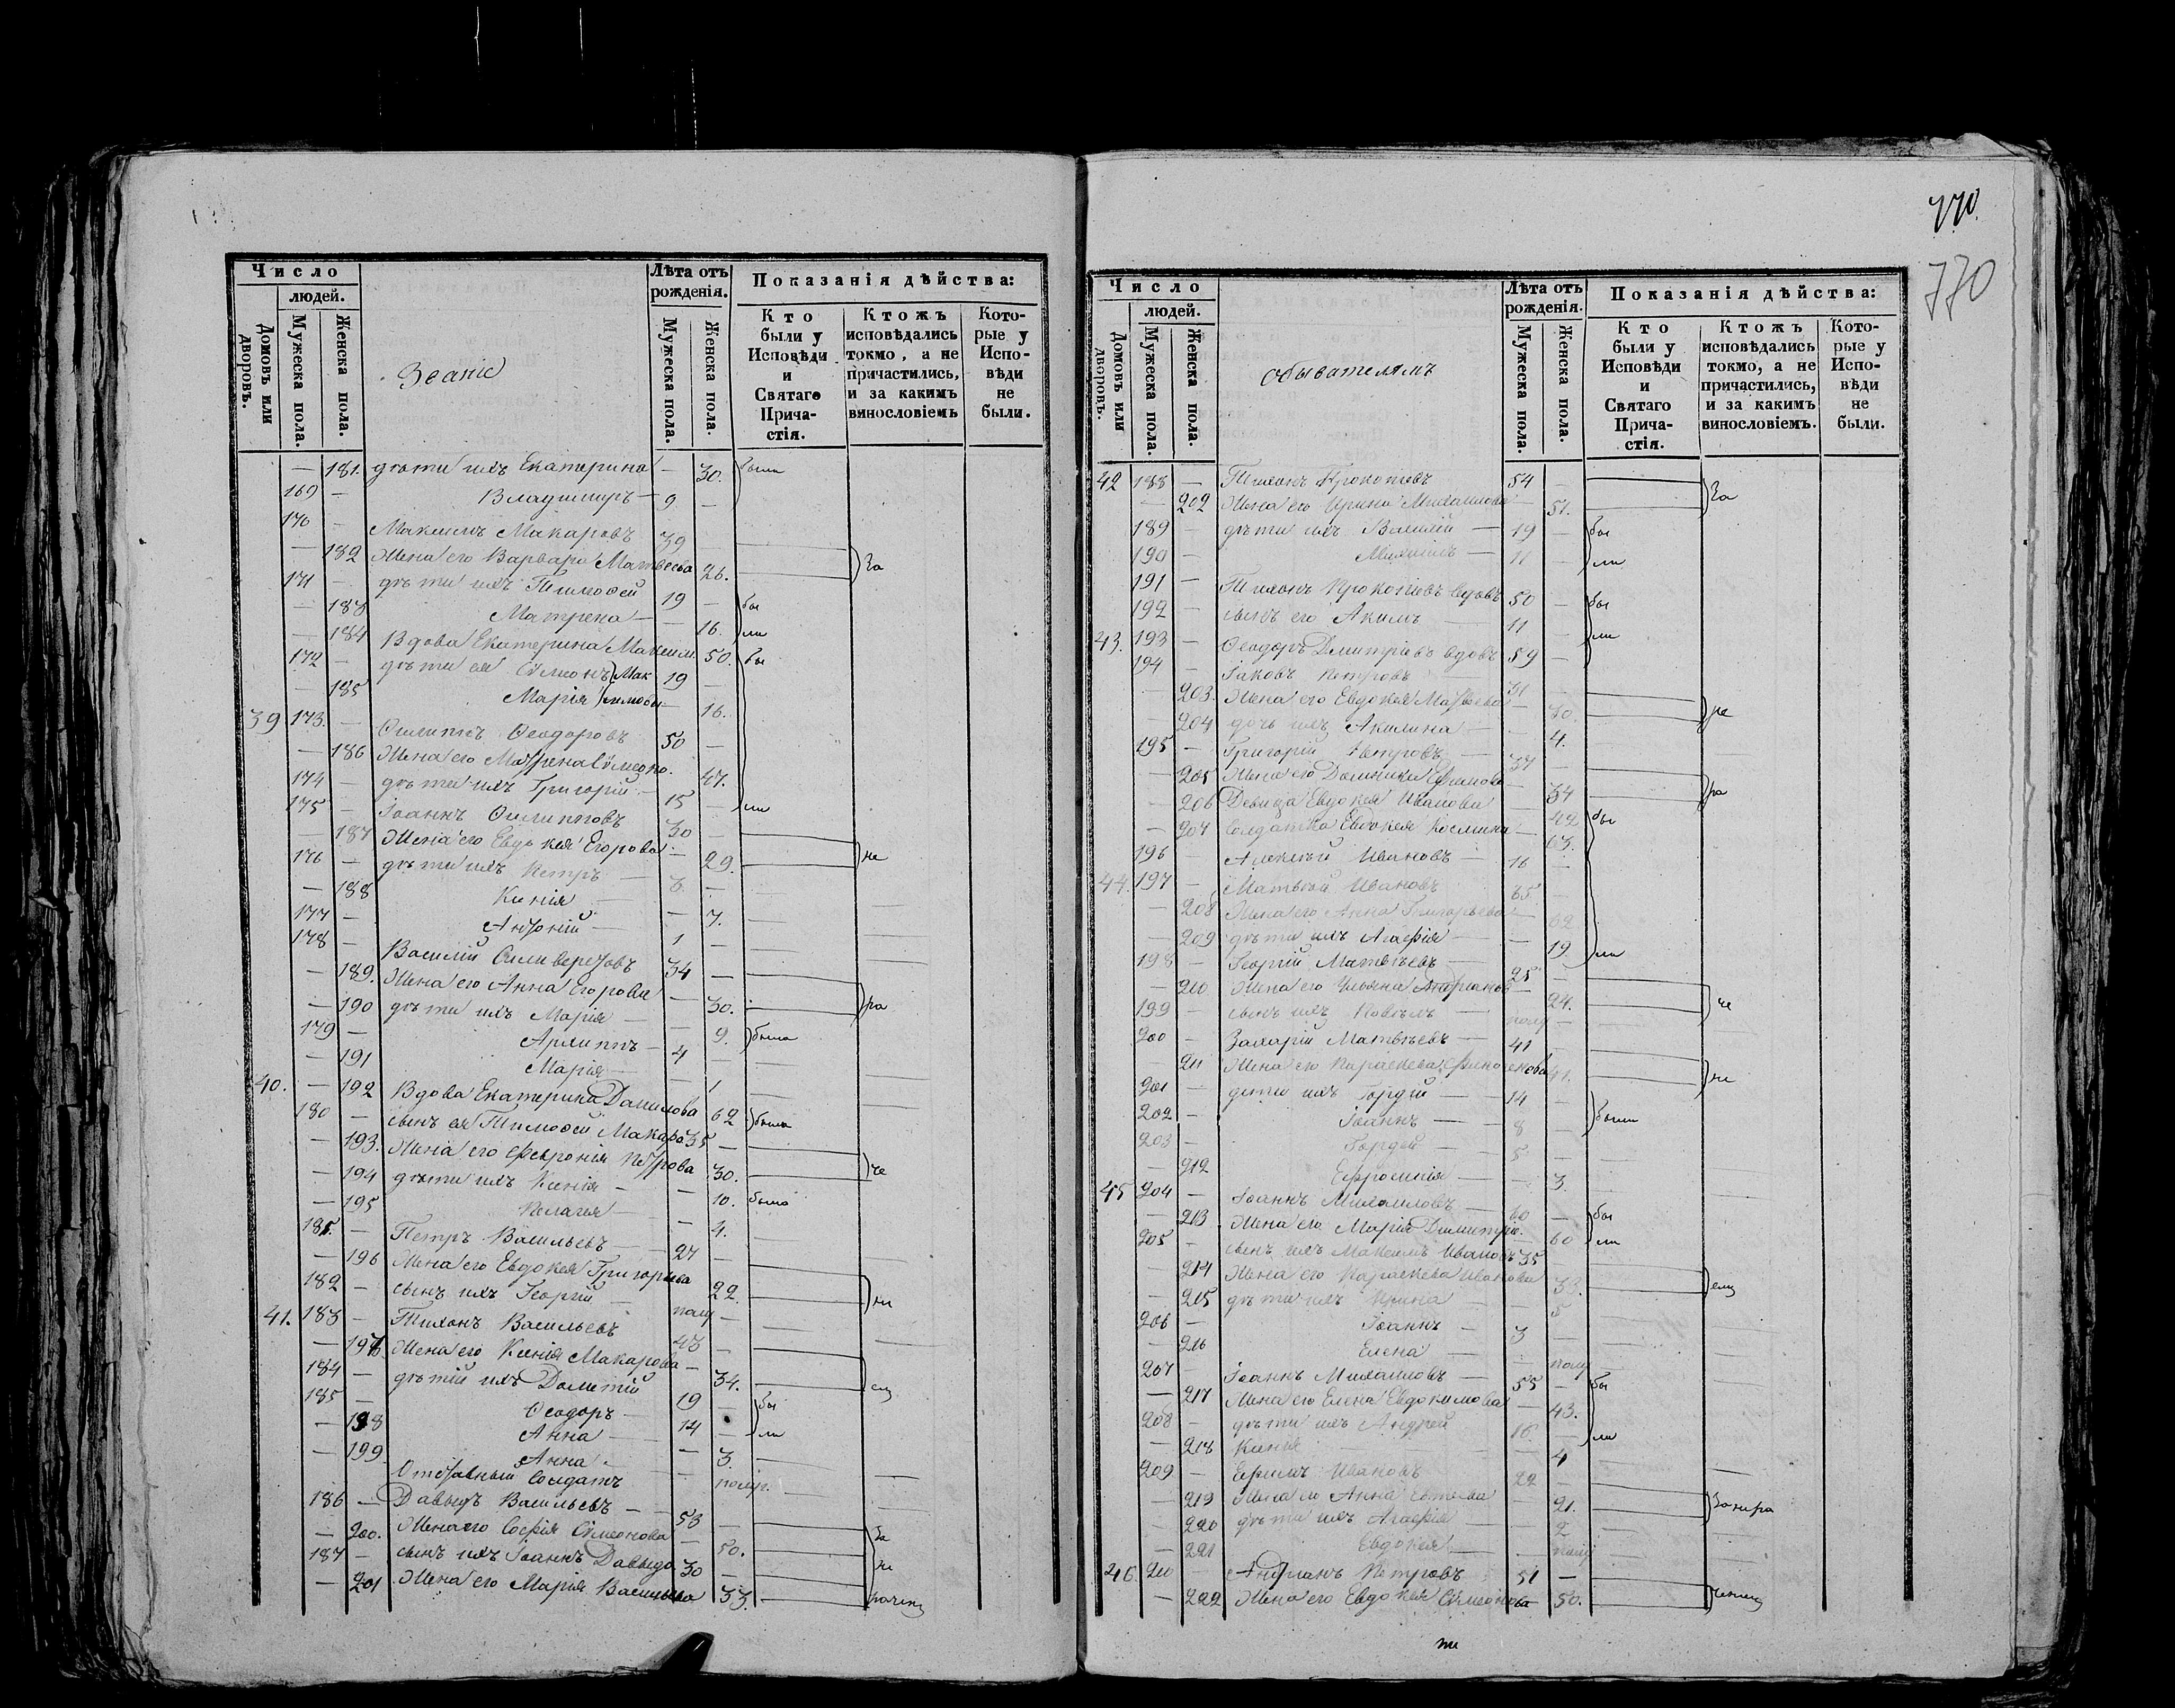 770.
770
Число
людей.
Домовъ или дворовъ.
Мужеска пола.
Женска пола.
Лѣта отъ рожденія.
Мужеска пола.
Женска пола.
Показанія дѣйства:
Кто были у Исповѣди и Святаго Прича-стія.
Ктожъ исповѣдались токмо, а не причастились, и за какимъ винословіемъ
Кото-рые у Испо-вѣди не были.
— 181. дѣти ихъ Екатерина — 30. были
169 — Владимиръ — 9 —
170 — Максимъ Макаровъ 39 —
— 182 Жена его Варвара Матвеева 26. За
171 — дѣти ихъ Тимофей 19 — бы
— 183 Матрена — 16. ли
— 184 Вдова Екатерина Максим. 50. бы
172 — дѣти ея Сѵмеонъ Мак 19 —
— 185 Марія симовы 16.
39 173. — Филиппъ Ѳеодоровъ 50 —
— 186 Жена его Матрена Сѵмеоно. 47.
174 — дѣти ихъ Григорій — 15 — ли
175 — Іоаннъ Филипповъ 30 —
— 187 Жена его Евдокея Егорова — 29. не
176 — дѣти ихъ Петръ — 3. —
— 188 Ксенія — 7.
177 — Антоній — 1 —
178 — Василій 34 —
— 189. Жена его Анна Егорова — 30. ра
— 190 дѣти ихъ Марія — 9. была
179 — Архиппъ — 4 —
— 191 Марія — 1
40. — 192 Вдова Екатерина Данилова 62 была
180 — сынъ ея Тимофей Макаро 35 —
— 193. Жена его Феврония Петрова 30. че
— 194 дѣти ихъ Ксенія — 10. была
— 195 Пелагея — 4.
181. — Петръ Васильевъ — 27 —
— 196 Жена его Евдокея Григорьева 22. ни
182 — сынъ ихъ Георгій — полу —
41. 183 — Тихонъ Васильевъ 43 —
— 197 Жена его Ксенія Макарова — 34. ем
184 — дѣтій ихъ Дометій 19 — бы
185 — Ѳеодоръ — 14 — ли
— 198 Анна — 3.
— 199 Анна — полур.
Отставный Солдатъ
186 — Давыдъ Васильевъ — 53 —
— 200. Жена его Софія Сѵмеонова — 50. За
187 — сынъ ихъ Іоаннъ Давыдо 30 — не
— 201 Жена его Марія Васильева 33. раченіем
Число
людей.
Домовъ или дворовъ.
Мужеска пола.
Женска пола.
обывателямъ
Лѣта отъ рожденія.
Мужеска пола.
Женска пола.
Показанія дѣйства:
Кто были у Исповѣди и Святаго Прича-стія.
Ктожъ исповѣдались токмо, а не причастились, и за какимъ винословіемъ.
Кото-рые у Испо-вѣди не были.
42 188 — Тихонъ Прокопіевъ 54 —
— 202 Жена его Ирина Михаилова — 51. За
189 — дѣти ихъ Василій — 19 — бы
190 — Михаилъ — 11 — ли
191 — Тихонъ Прокопіевъ вдовъ 50 — бы
192 — сынъ его Акимъ 11 — ли
43. 193 — Ѳеодоръ Димитріевъ вдовъ 59 —
194 — Іаковъ Петровъ 31 —
— 203. Жена его Евдокея Матвеева — 30. не
— 204 дочь ихъ Акилина — 4.
195 — Григорій Петровъ — 37 —
— 205 Жена его Домника — 34 ра
— 206 Девица Евдокея Иванова — 42 бы
— 207 Солдатка Евдокея Космина — 63.
196 — Алексѣй Ивановъ — 16 —
44. 197 — Матвѣй Ивановъ 65 —
— 208 Жена его Анна Григорьева — 62
— 209 дѣти ихъ Агафія — 19 ли
198 — Георгій Матвѣевъ — 25 —
— 210 Жена его Ульяна — 24. че
199 — сынъ ихъ Павелъ — полу —
200 — Захарій Матвѣевъ — 41 —
— 211 Жена его Параскева 41. ни
201 — дети ихъ Гордій — 14 — были
202 — Іоаннъ — 8 —
203 — Гордей — 5 —
— 212 Ефросинія — 3.
45 204 — Іоаннъ Михаиловъ — 60 — бы
— 213 Жена его Марія Димитріе. 60 ли
205 — сынъ ихъ Максимъ Ивановъ 35
— 214 Жена его Параскева Иванова 33. ем
— 215 дѣти ихъ Ирина — 5
206 — Іоаннъ — 3 —
— 216 Елена — полу
207 — Іоаннъ Михаиловъ — 55 — бы
— 217 Жена его Елена Евдокимова — 43.
208 — дѣти ихъ Андрей 16 — ли
— 218 Ксенія — 4
209 — Ефимъ Ивановъ 22 —
— 219 Жена его Анна — 21. За нера
— 220 дѣти ихъ Агафія — 2
— 221 Евдокея — полу
46. 210 — Андріанъ Петровъ 51 —
— 222 Жена его Евдокея Сѵмеонова — 50. ченіем